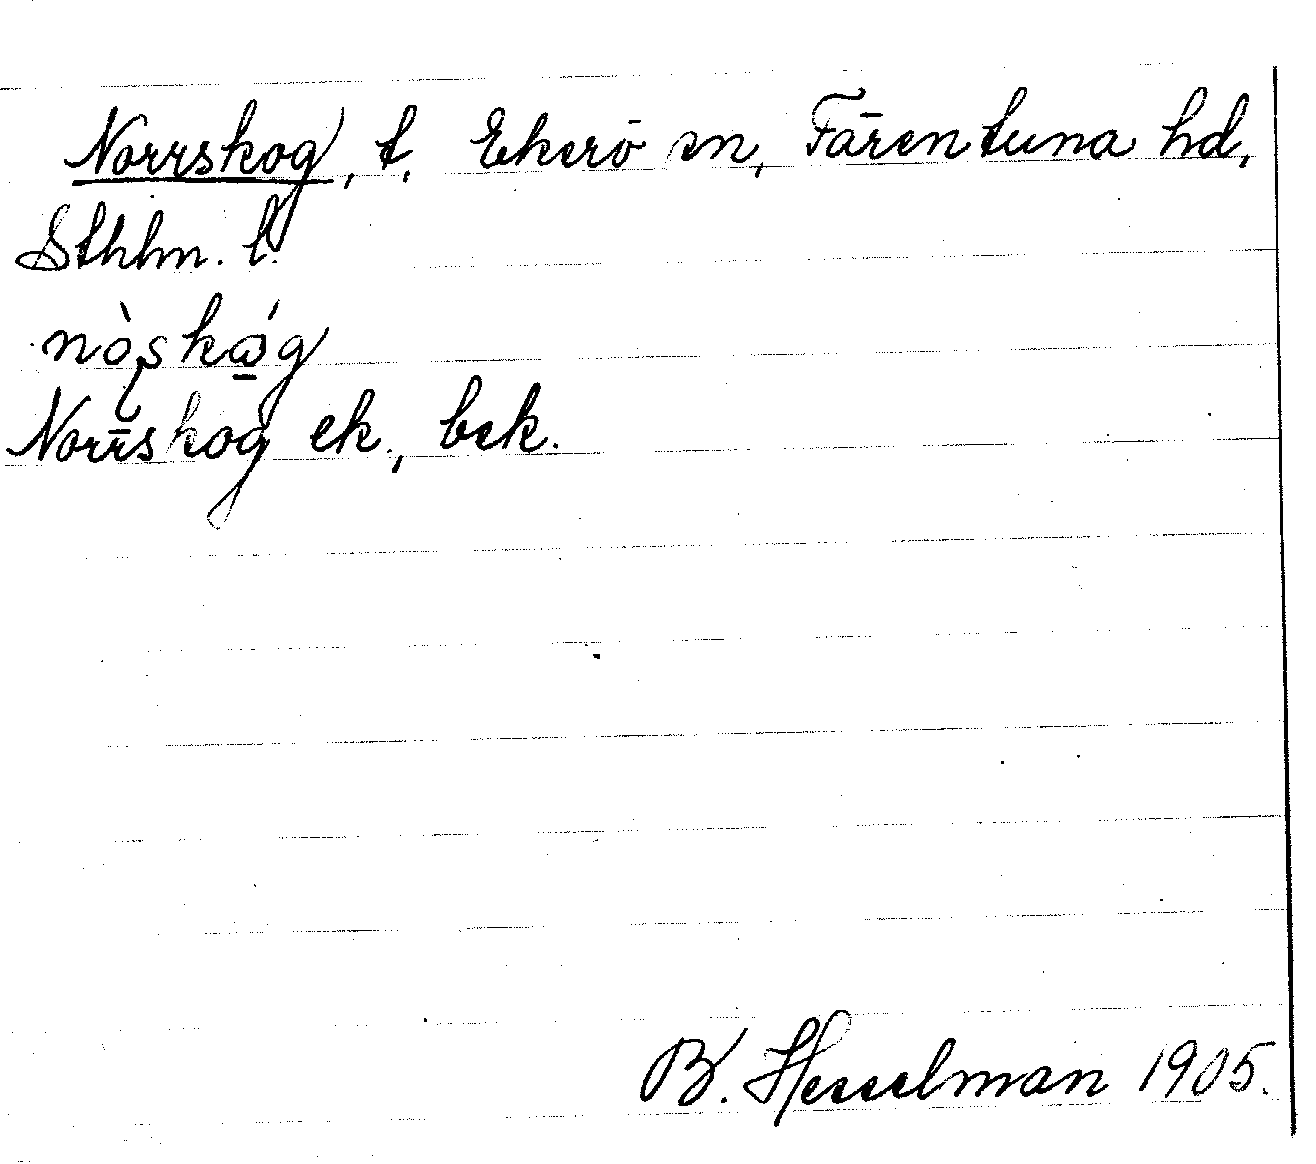 Norrskog, t. Ekerö sn, Färentuna hd,
Sthlm. l.
Norrskog ek., bek.
B. Hesselman 1905.